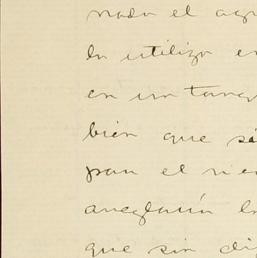 nada el agu
lo utilizo en
en un tanq
bien que si
para el rie
arreglarán l
que sin di